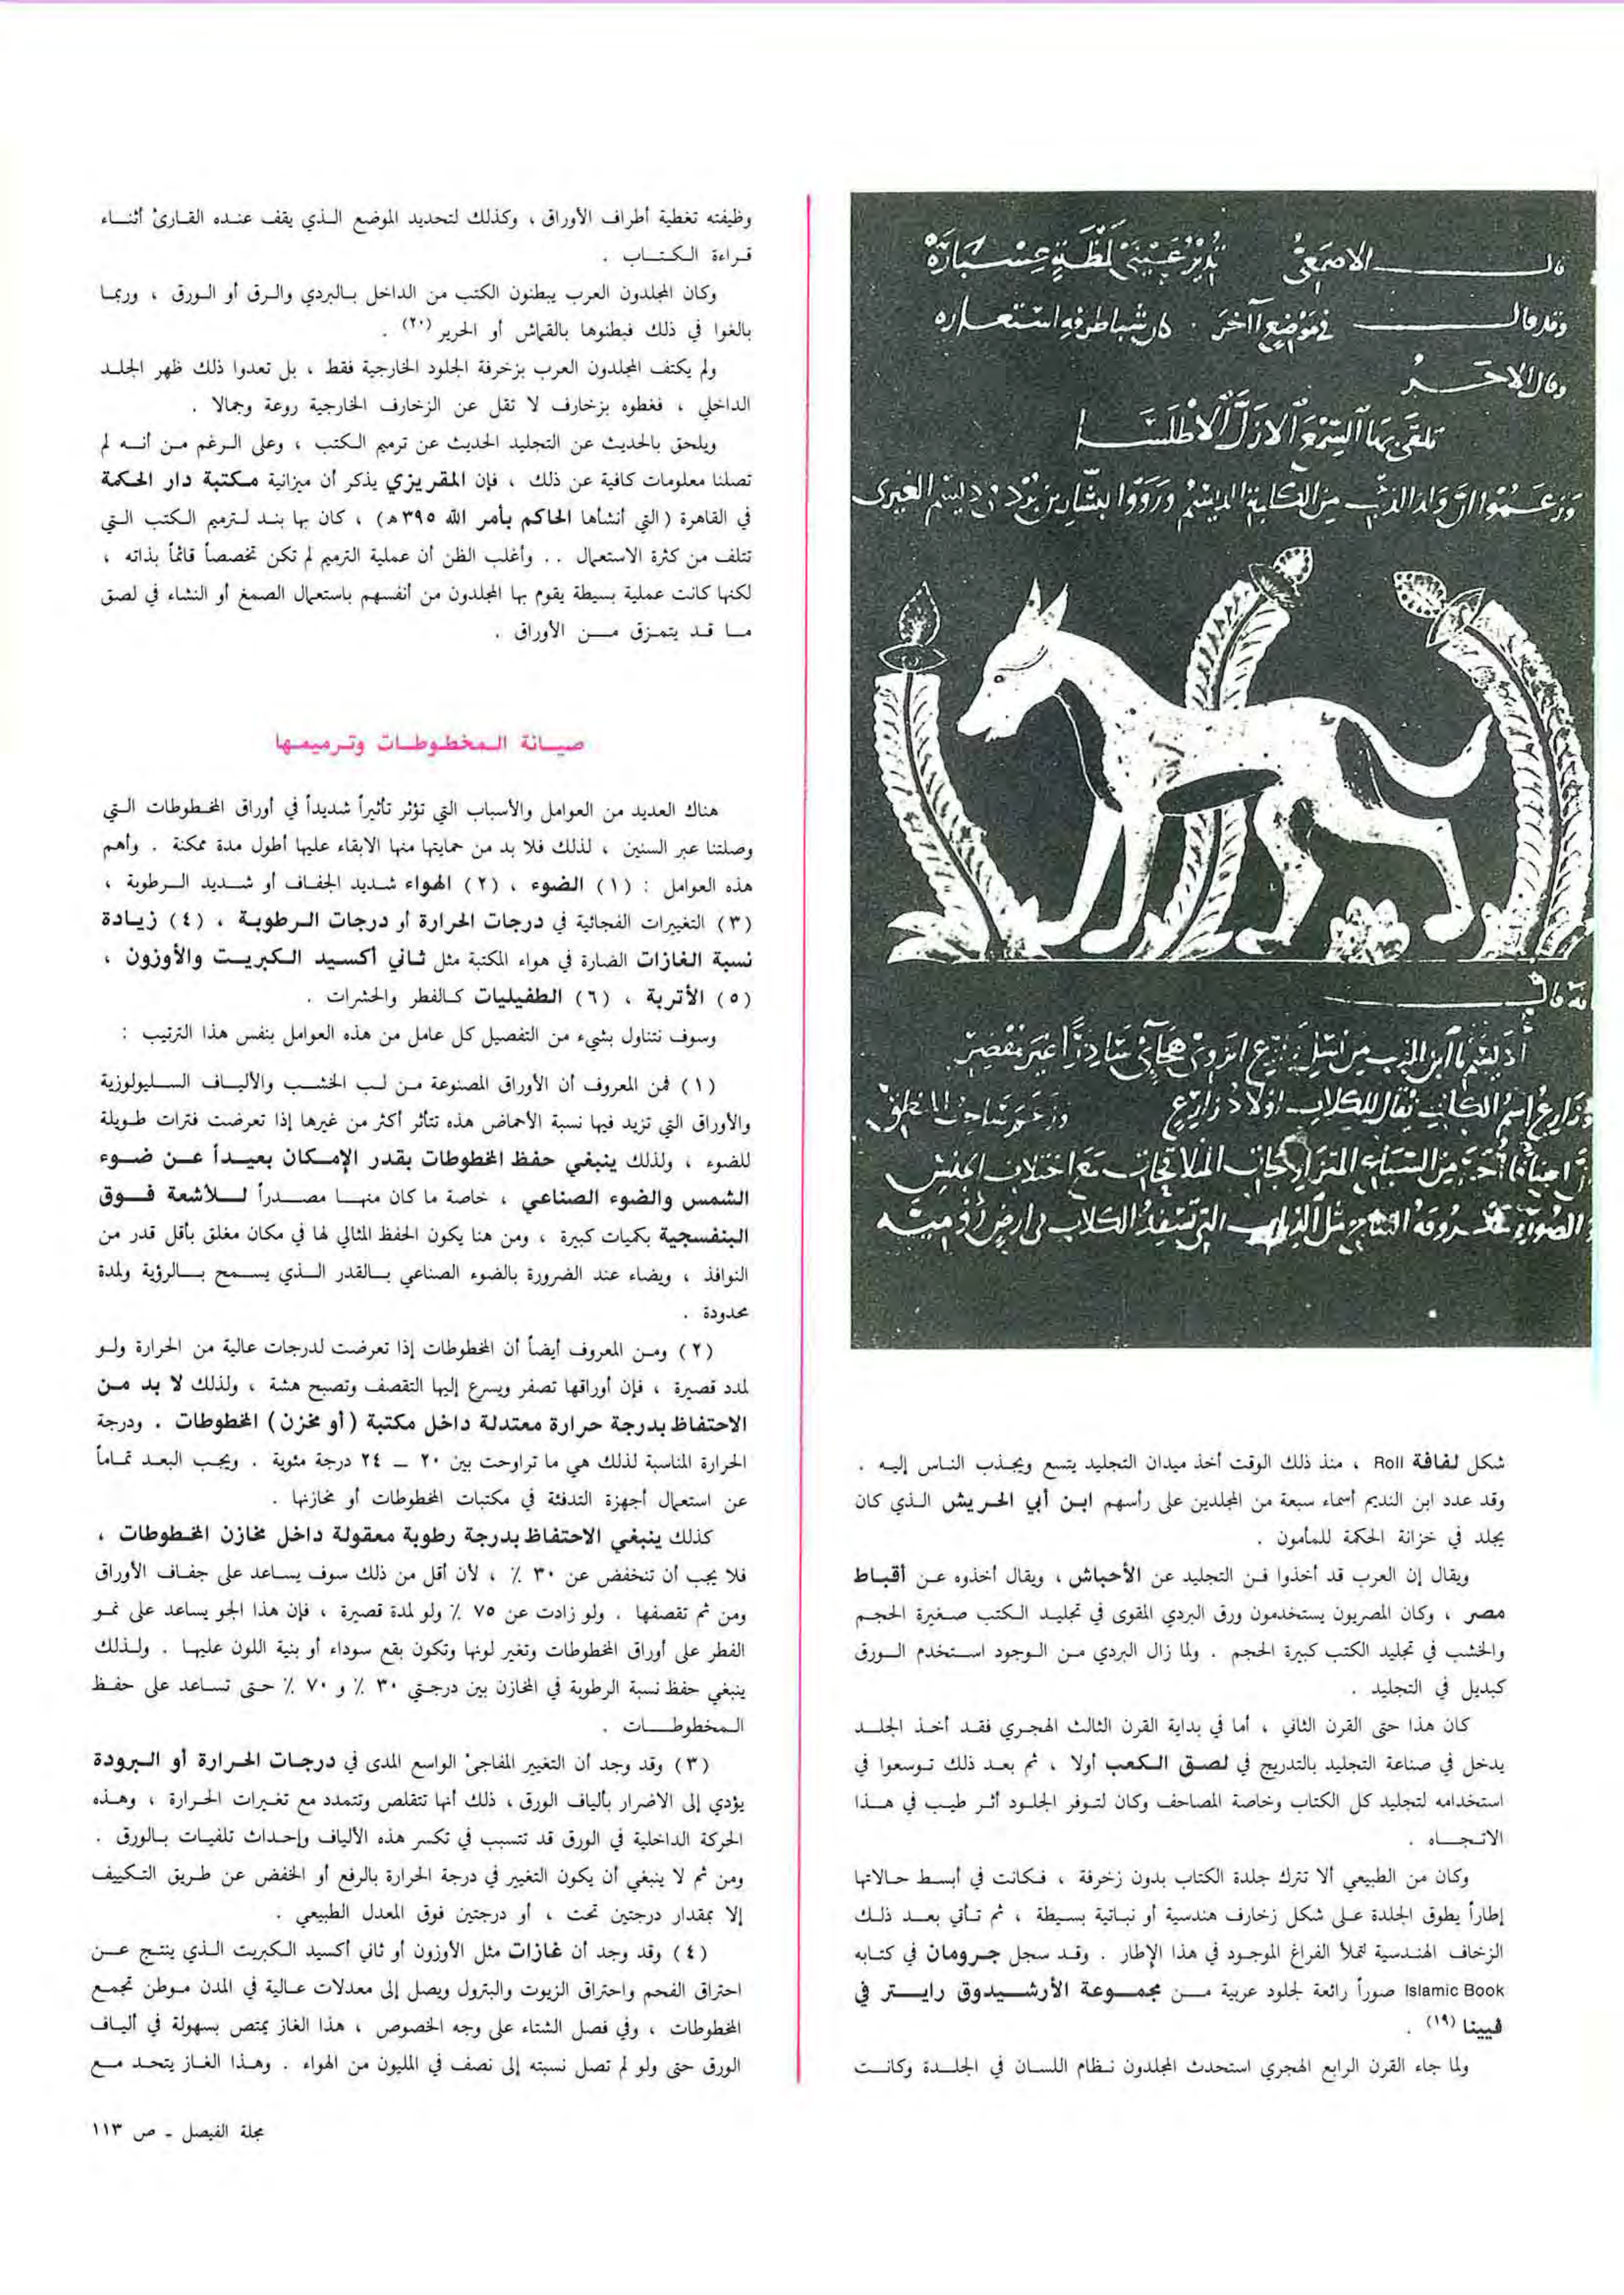 قال الاصمعي
وقد قال في موضع آخر
وقال الآخر
شكل لفافة Roll ، منذ ذلك الوقت أخذ ميدان التجليد يتسع ويجذب الناس إليه .
وقد عدد ابن النديم أسماء سبعة من المجلدين على رأسهم ابن أبي الحريش الذي كان
يجلد في خزانة الحكمة للمأمون .
ويقال إن العرب قد أخذوا فن التجليد عن الأحباش ، ويقال أخذوه عن أقباط
مصر ، وكان المصريون يستخدمون ورق البردي المقوى في تجليد الكتب صغيرة الحجم
والخشب في تجليد الكتب كبيرة الحجم . ولما زال البردي من الوجود استخدم الورق
كبديل في التجليد .
كان هذا حتى القرن الثاني ، أما في بداية القرن الثالث الهجري فقد أخذ الجلد
يدخل في صناعة التجليد بالتدريج في لصق الكعب أولا ، ثم بعد ذلك توسعوا في
استخدامه لتجليد كل الكتاب وخاصة المصاحف وكان لتوفر الجلود أثر طيب في هذا
الاتجاه .
وكان من الطبيعي ألا تترك جلدة الكتاب بدون زخرفة ، فكانت في أبسط حالاتها
إطاراً يطوق الجلدة على شكل زخارف هندسية أو نباتية بسيطة ، ثم تأتي بعد ذلك
الزخاف الهندسية لتملأ الفراغ الموجود في هذا الإطار . وقد سجل جرومان في كتابه
Islamic Book صوراً رائعة لجلود عربية من مجموعة الأرشيدوق راينر في
فيينا (١٩) .
ولما جاء القرن الرابع الهجري استحدث المجلدون نظام اللسان في الجلدة وكانت
وظيفته تغطية أطراف الأوراق ، وكذلك لتحديد الموضع الذي يقف عنده القارئ أثناء
قراءة الكتاب .
وكان المجلدون العرب يبطنون الكتب من الداخل بالبردي والرق أو الورق ، وربما
بالغوا في ذلك فبطنوها بالقماش أو الحرير (٢٠) .
ولم يكتف المجلدون العرب بزخرفة الجلود الخارجية فقط ، بل تعدوا ذلك ظهر الجلد
الداخلي ، فغطوه بزخارف لا تقل عن الزخارف الخارجية روعة وجمالا .
ويلحق بالحديث عن التجليد الحديث عن ترميم الكتب ، وعلى الرغم من أنه لم
تصلنا معلومات كافية عن ذلك ، فإن المقريزي يذكر أن ميزانية مكتبة دار الحكمة
في القاهرة ( التي أنشأها الحاكم بأمر الله ٣٩٥ هـ ) ، كان بها بند لترميم الكتب التي
تتلف من كثرة الاستعمال .. وأغلب الظن أن عملية الترميم لم تكن تخصصاً قائماً بذاته ،
لكنها كانت عملية بسيطة يقوم بها المجلدون من أنفسهم باستعمال الصمغ أو النشاء في لصق
ما قد يتمزق من الأوراق .
صيانة المخطوطات وترميمها
هناك العديد من العوامل والأسباب التي تؤثر تأثيراً شديداً في أوراق المخطوطات التي
وصلتنا عبر السنين ، لذلك فلا بد من حمايتها منها الابقاء عليها أطول مدة ممكنة . وأهم
هذه العوامل : ( ١ ) الضوء ، ( ٢ ) الهواء شديد الجفاف أو شديد الرطوبة ،
( ٣ ) التغييرات الفجائية في درجات الحرارة أو درجات الرطوبة ، ( ٤ ) زيادة
نسبة الغازات الضارة في هواء المكتبة مثل ثاني أكسيد الكبريت والأوزون ،
( ٥ ) الأتربة ، ( ٦ ) الطفيليات كالفطر والحشرات .
وسوف نتناول بشيء من التفصيل كل عامل من هذه العوامل بنفس هذا الترتيب :
( ١ ) فمن المعروف أن الأوراق المصنوعة من لب الخشب والألياف السليولوزية
والأوراق التي تزيد فيها نسبة الأحماض هذه تتأثر أكثر من غيرها إذا تعرضت فترات طويلة
للضوء ، ولذلك ينبغي حفظ المخطوطات بقدر الإمكان بعيداً عن ضوء
الشمس والضوء الصناعي ، خاصة ما كان منها مصدراً للأشعة فوق
البنفسجية بكميات كبيرة ، ومن هنا يكون الحفظ المثالي لها في مكان مغلق بأقل قدر من
النوافذ ، ويضاء عند الضرورة بالضوء الصناعي بالقدر الذي يسمح بالرؤية ولمدة
محدودة .
( ٢ ) ومن المعروف أيضاً أن المخطوطات إذا تعرضت لدرجات عالية من الحرارة ولو
لمدد قصيرة ، فإن أوراقها تصفر ويسرع إليها التقصف وتصبح هشة ، ولذلك لا بد من
الاحتفاظ بدرجة حرارة معتدلة داخل مكتبة ( أو مخزن ) المخطوطات . ودرجة
الحرارة المناسبة لذلك هي ما تراوحت بين ٢٠ – ٢٤ درجة مئوية . ويجب البعد تماماً
عن استعمال أجهزة التدفئة في مكتبات المخطوطات أو مخازنها .
كذلك ينبغي الاحتفاظ بدرجة رطوبة معقولة داخل مخازن المخطوطات ،
فلا يجب أن تنخفض عن ٣٠ ٪ ، لأن أقل من ذلك سوف يساعد على جفاف الأوراق
ومن ثم تقصفها . ولو زادت عن ٧٥ ٪ ولو لمدة قصيرة ، فإن هذا الجو يساعد على نمو
الفطر على أوراق المخطوطات وتغير لونها وتكون بقع سوداء أو بنية اللون عليها . ولذلك
ينبغي حفظ نسبة الرطوبة في المخازن بين درجتي ٣٠ ٪ و ٧٠ ٪ حتى تساعد على حفظ
المخطوطات .
( ٣ ) وقد وجد أن التغيير المفاجئ الواسع المدى في درجات الحرارة أو البرودة
يؤدي إلى الاضرار بألياف الورق ، ذلك أنها تتقلص وتتمدد مع تغيرات الحرارة ، وهذه
الحركة الداخلية في الورق قد تتسبب في تكسر هذه الألياف وإحداث تلفيات بالورق .
ومن ثم لا ينبغي أن يكون التغيير في درجة الحرارة بالرفع أو الخفض عن طريق التكييف
إلا بمقدار درجتين تحت ، أو درجتين فوق المعدل الطبيعي .
( ٤ ) وقد وجد أن غازات مثل الأوزون أو ثاني أكسيد الكبريت الذي ينتج عن
احتراق الفحم واحتراق الزيوت والبترول ويصل إلى معدلات عالية في المدن موطن تجمع
المخطوطات ، وفي فصل الشتاء على وجه الخصوص ، هذا الغاز يمتص بسهولة في ألياف
الورق حتى ولو لم تصل نسبته إلى نصف في المليون من الهواء . وهذا الغاز يتحد مع
مجلة الفيصل - ص ١١٣